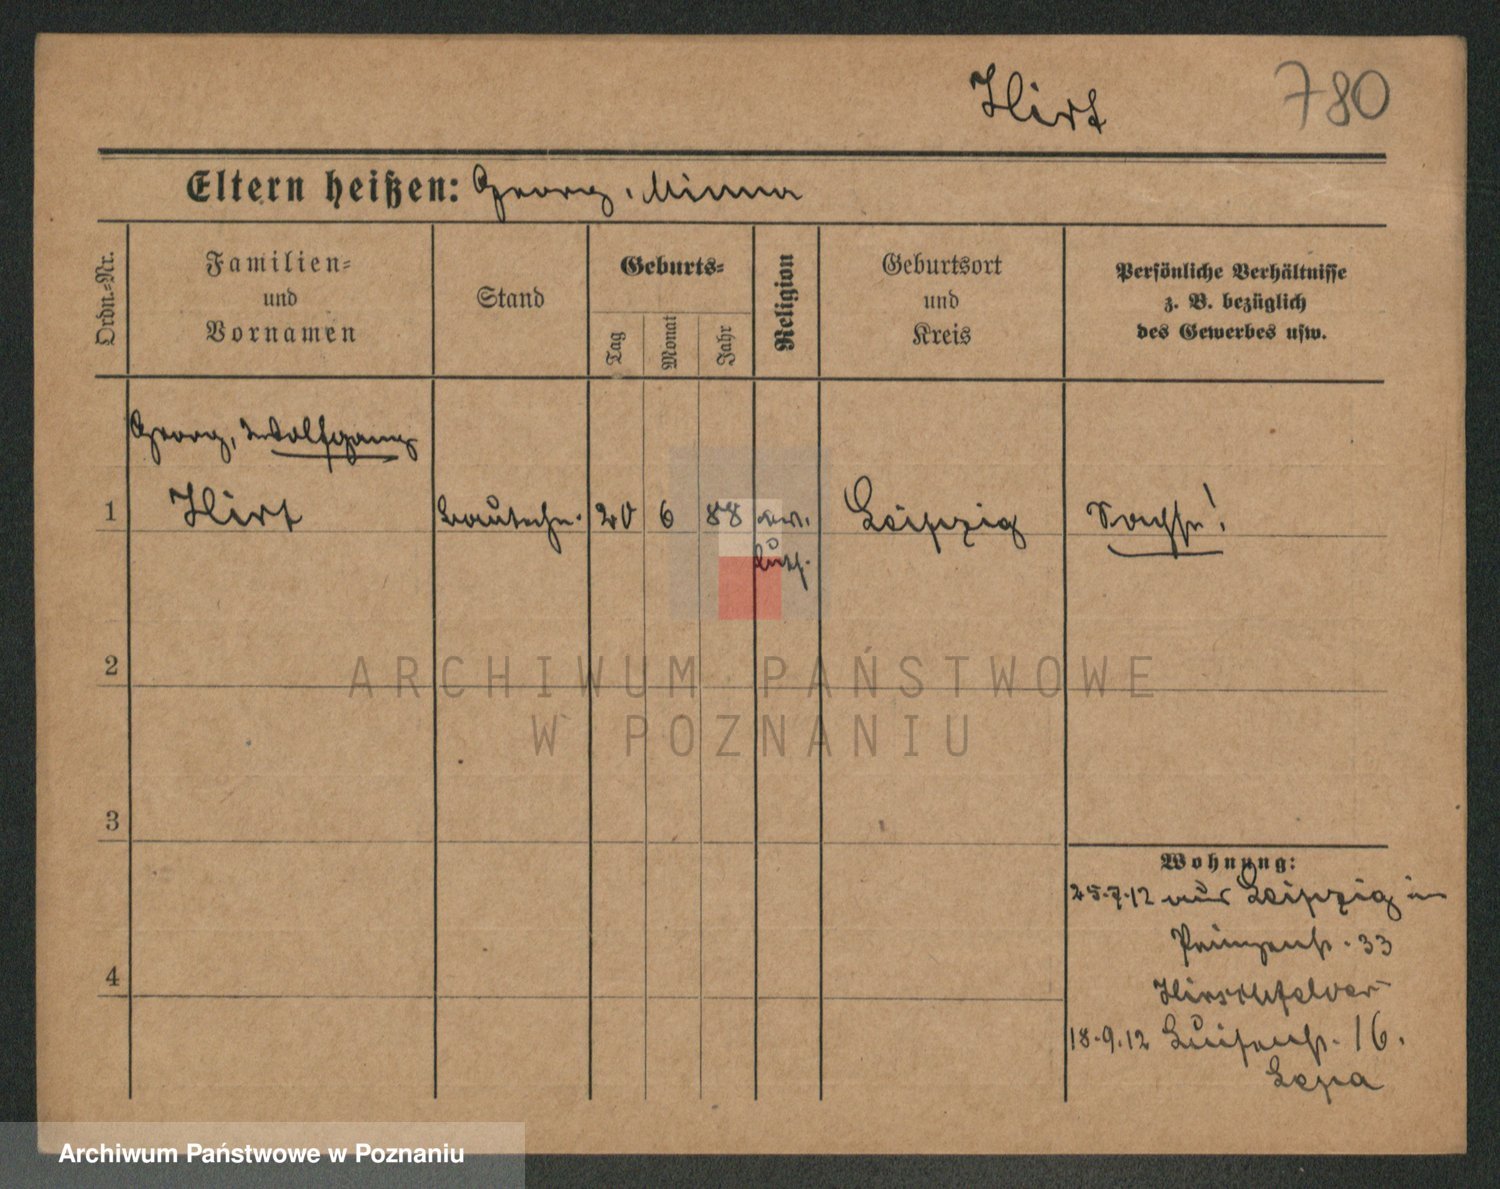 Hirt 780
Eltern heißen: Georg, Minna
Ordn.-Nr.
Familien-
und
Vornamen
Stand
Geburts-
Tag
Monat
Jahr
Religion
Geburtsort
und
Kreis
Persönliche Verhältnisse
z. B. bezüglich
des Gewerbes usw.
Georg, Wolfgang
1 Hirt Bautechn. 20 6 88 ev. Leipzig Sachse!
luth.
2
3
4
Wohnung:
25.7.12 aus Leipzig in
Prinzenstr. 33
Hirschfelder
18.9.12 Luisenstr. 16.
ARCHIWUM PAŃSTWOWE
W POZNANIU
Archiwum Państwowe w Poznaniu